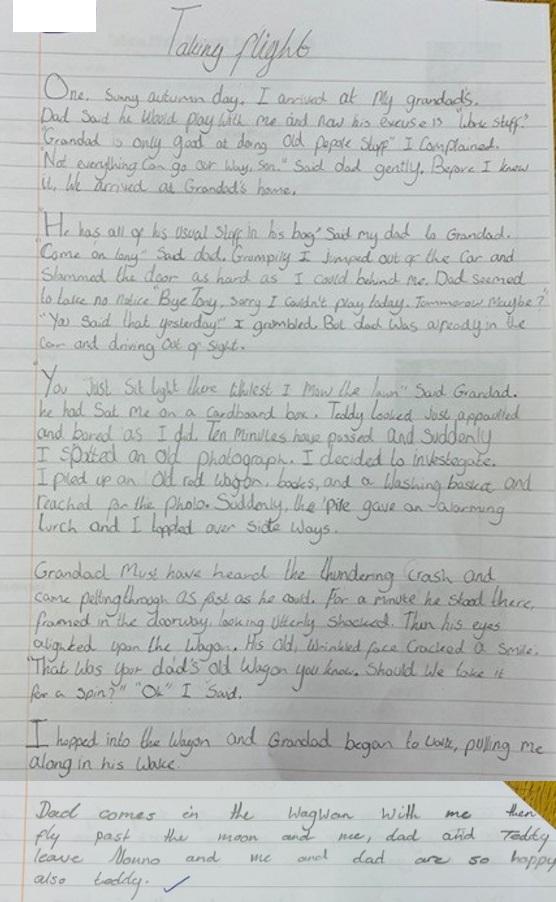 Taking flight
One, sunny autumn day, I arrived at My grandad's.
Dad Said he Would play With me and now his excuse is "Work Stuff."
"Grandad is only good at doing Old Pepole Stuff" I Complained.
"Not everything Can go our Way, Son." Said dad gently. Before I knew
it, We arrived at Grandad's home.
"He has all of his Usual Stuff in his bag" Said my dad to Grandad.
"Come on Tony" Said dad. Grumpily I Jumped out of the Car and
Slammed the door as hard as I could behind me. Dad Seemed
to take no notice "Bye Tony, Sorry I Couldn't play today. Tommorow Maybe?"
"You Said that yesterday!" I grumbled. But dad Was alpready in the
Car and driving Out of Sight.
"You Just Sit tight there Whilest I Mow the lawn" Said Grandad.
he had Sat Me on a Cardboard box. Teddy looked Just as
and bored as I did. Ten Minutes have passed and Suddenly
I Spotted an old photograph. I decided to investegate.
I piled up an Old red Wagon, books, and a Washing basket and
reached for the Photo. Suddenly, the pile gave an alarming
lurch and I toppled over Side Ways.
Grandad Must have heard the thundering Crash and
came pelting through as fast as he could. For a minute he Stood there,
framed in the doorway, looking Utterly Shocked. Then his eyes
alighted upon the Wagon. His Old, Wrinkled face Cracked a Smile.
"That Was your dad's old Wagon you know. Should We take it
for a Spin?" "Ok" I Said.
I hopped into the Wagon and Grandad began to Walk, pulling me
along in his Wake.
Dad comes in the Wagwan With me then
fly past the moon and me, dad and Teddy
leave Nonno and me and dad are so happy
also teddy.